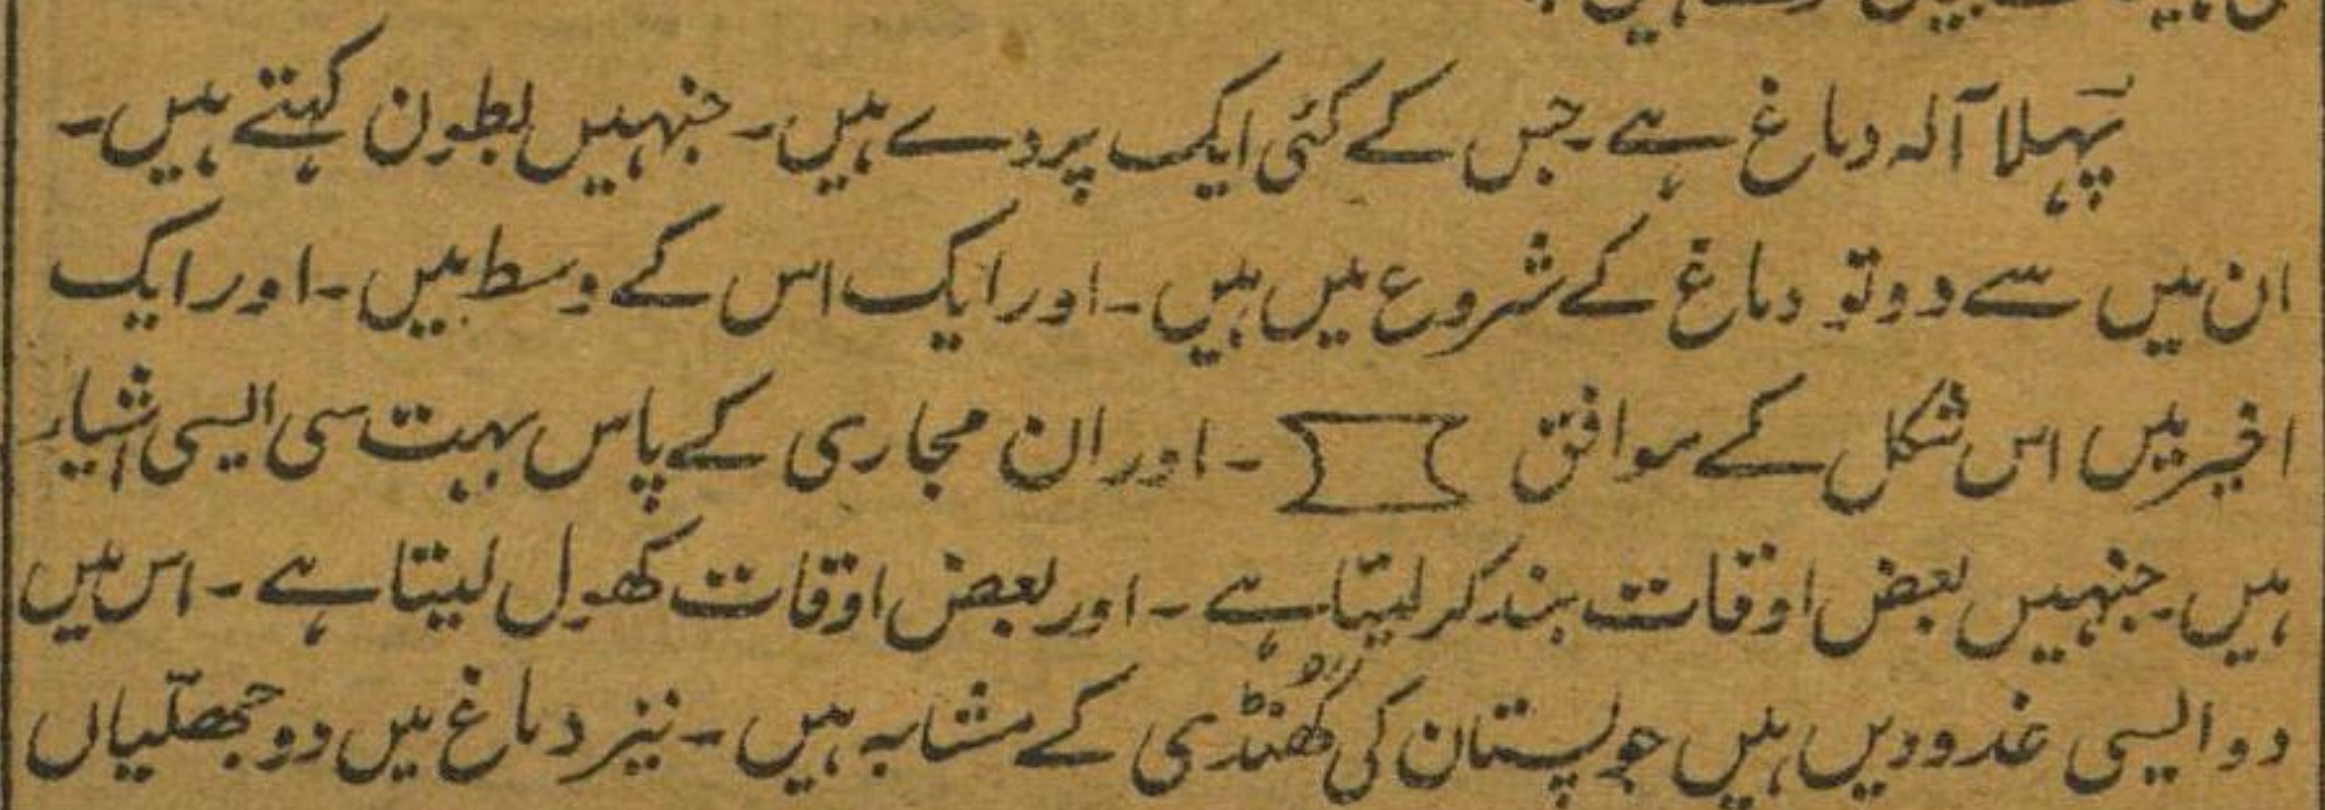 پہلا آلہ دماغ ہے۔ جس کے کئی ایک پردے ہیں۔ جنہیں بطون کہتے ہیں۔
ان میں سے دو تو دماغ کے شروع میں ہیں۔ اور ایک اس کے وسط میں۔ اور ایک
اخیر میں اس شکل کے موافق ۔ اور ان مجاری کے پاس بہت سی ایسی اشیار
ہیں۔ جنہیں بعض اوقات بند کر لیتا ہے۔ اور بعض اوقات کھول لیتا ہے۔ اس میں
دو ایسی غدودیں ہیں جو پستان کی گھنڈی کے مشابہ ہیں۔ نیز دماغ میں دو جھلّیاں